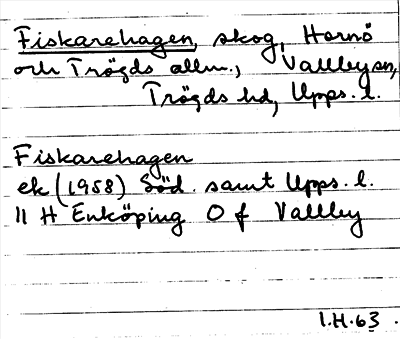 Fiskarehagen, skog, Hornö
och Trögds allm., Vallby sn,
Trögds hd, Upps. l.
Fiskarehagen
ek (1958) Söd. samt Upps. l.
11 H Enköping 0 f Vallby
I.H.63.